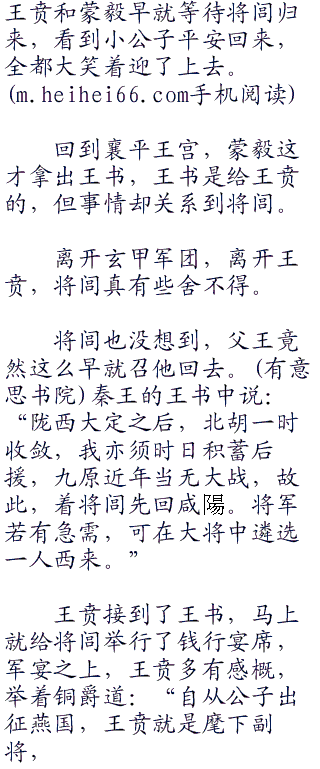 王贲和蒙毅早就等待将闾归
来，看到小公子平安回来，
全都大笑着迎了上去。
(m.heihei66.com手机阅读)
回到襄平王宫，蒙毅这
才拿出王书，王书是给王贲
的，但事情却关系到将闾。
离开玄甲军团，离开王
贲，将闾真有些舍不得。
将闾也没想到，父王竟
然这么早就召他回去。(有意
思书院)秦王的王书中说：
“陇西大定之后，北胡一时
收敛，我亦须时日积蓄后
援，九原近年当无大战，故
此，着将闾先回咸陽。将军
若有急需，可在大将中遴选
一人西来。”
王贲接到了王书，马上
就给将闾举行了钱行宴席，
军宴之上，王贲多有感概，
举着铜爵道：“自从公子出
征燕国，王贲就是麾下副
将，